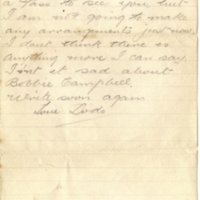 a pass to see you but
I am not going to make
any arrangements just now.
I dont think there is
anything more I can say.
Isnt it sad about
Bobbie Campbell.
Write soon again
Love